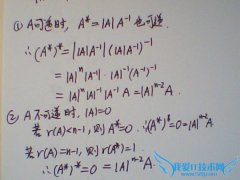 ① A可逆时, A* = |A|A⁻¹ 也可逆
∴(A*)* = ||A|A⁻¹|(|A|A⁻¹)⁻¹
= |A|ⁿ|A⁻¹|·|A|⁻¹(A⁻¹)⁻¹
= |A|ⁿ|A|⁻¹|A|⁻¹A = |A|ⁿ⁻²A
② A不可逆时, |A|=0
若r(A)<n-1, 则A*=0 ∴(A*)*=0=|A|ⁿ⁻²A
若r(A)=n-1, 则r(A*)=1
∴(A*)*=0=|A|ⁿ⁻²A
我爱IT技术网